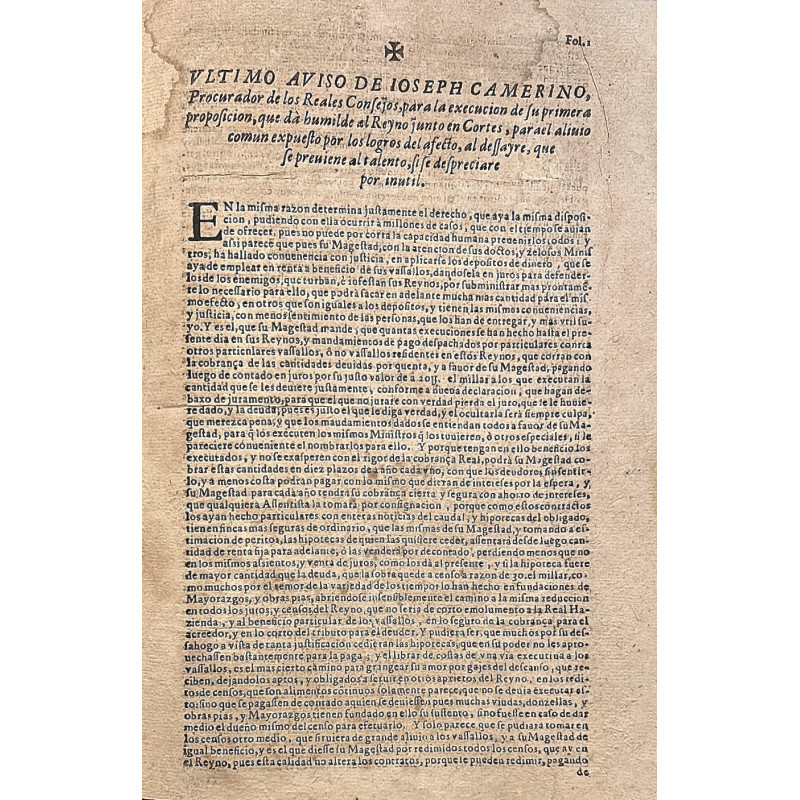 Fol.1
✠
VLTIMO AVISO DE IOSEPH CAMERINO,
Procurador de los Reales Consejos, para la execucion de su primera
proposicion, que dà humilde al Reyno junto en Cortes, para el aliuio
comun expuesto por los logros del afecto, al dessayre, que
se preuiene al talento, si se despreciare
por inutil.
EN la misma razon determina justamente el derecho, que aya la misma disposi-
cion, pudiendo con ella ocurrir à millones de casos, que con el tiempo se auian
de ofrecer, pues no puede por corta la capacidad humana preuenirlos todos: y
assi parece que pues su Magestad, con la atencion de sus doctos, y zelosos Minis
tros, ha hallado conuenencia con justicia, en aplicarse los depositos de dinero, que se
aya de emplear en renta a beneficio de sus vassallos, dandosela en juros para defender-
los de los enemigos, que turban, è infestan sus Reynos, por subministrar mas prontamẽ-
te lo necessario para ello, que podrà sacar en adelante mucha mas cantidad para el mis-
mo efecto, en otros que son iguales a los depositos, y tienen las mismas conueniencias,
y justicia, con menos sentimento de las personas, que los han de entregar, y mas vtil su-
yo. Y es el, que su Magestad mande, que quantas execuciones se han hecho hasta el pre-
sente dia en sus Reynos, y mandamientos de pago despachados por particulares contra
otros particulares vassallos, ò no vassallos residentes en essos Reynos, que corran con
la cobrança de las cantidades deuidas por quenta, y a fauor de su Magestad, pagando
luego de contado en juros por su justo valor de à 20ɥ. el millar a los que executan la
cantidad que se les deuiere justamente, conforme a nueua declaracion, que hagan de-
baxo de juramento, para que el que no jurare con verdad pierda el juro, que se le huuie
re dado, y la deuda, pues es justo el que le diga verdad, y el ocultarla serà siempre culpa,
que merezca pena, y que los maudamientos dados se entiendan todos a fauor de su Ma-
gestad, para q̃ los executen los mismos Ministros q̃ los tuuieren, ò otros especiales, si le
pareciere cõueniente el nombrarlos para ello. Y porque tengan en ello beneficio los
executados, y no se exasperen con el rigor de la cobrança Real, podrà su Magestad co-
brar estas cantidades en diez plazos de a año cada vno, con que los deudores sin sentir-
lo, y a menos costa podran pagar con lo mismo que dieran de intereses por la espera, y,
su Magestad para cada año tendra su cobrança cierta y segura con ahorro de intereses,
que qualquiera Assentista la tomarà por consignacion, porque como estos contractos
los ayan hecho particulares con enteras noticias del caudal, y hipotecas del obligado,
tienen fincas mas seguras de ordinario, que las mismas de su Magestad, y tomando a es-
timacion de peritos, las hipotecas de quien las quisiere ceder, assentarà desde luego can-
tidad de renta fija para adelante, ò las venderà por de contado, perdiendo menos que no
en los mismos assientos, y venta de juros, como los dà al presente, y si la hipoteca fuere
de mayor cantidad que la deuda, que la sobra quede a censo a razon de 30. el millar, co-
mo muchos por el temor de la variedad de los tiempo lo han hecho en fundaciones de
Mayorazgos, y obras pias, abriendose insensiblemente el camino a la misma reduccion
en todos los juros, y censos del Reyno, que no seria de corto emolumento a la Real Ha-
zienda, y al beneficio particular de los vassallos, en lo seguro de la cobrança para el
acreedor, y en lo corto del tributo para el deuder. Y pudiera ser, que muchos por su des-
ahogo a vista de tanta justificacion cedieran las hipotecas, que en su poder no les apro-
uechassen bastantemente para la paga; y el librar de costas de vna via executiua a los
vassallos, es el mas cierto camino para grangear su amor por gajes del descanso, que re-
ciben, dejandolos aptos, y obligados a seruir en otros aprietos del Reyno, en los redi-
tos de censos, que son alimentos cõtinuos solamente parece, que no se deuia executar es-
to: sino que se pagassen de contado a quien se deuiessen pues muchas viudas, donzellas, y
obras pias, y Mayorazgos tienen fundado en ello su sustento, sino fuesse en caso de dar
medio el dueño mismo del censo para efetuarlo. Y solo parece que se pudiara tomar en
los censos otro medio, que siruiera de grande aliuio a los vassallos, y a su Magestad de
igual beneficio, y es el que diesse su Magestad por redimidos todos los censos, que ay en
el Reyno, pues esta calidad no altera los contratos, porque se pueden redimir, pagando
de